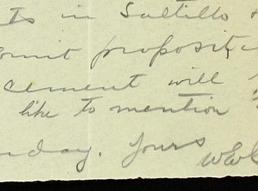 ts in Saltillo
proposit
cement will
like to mention
nday. Yours